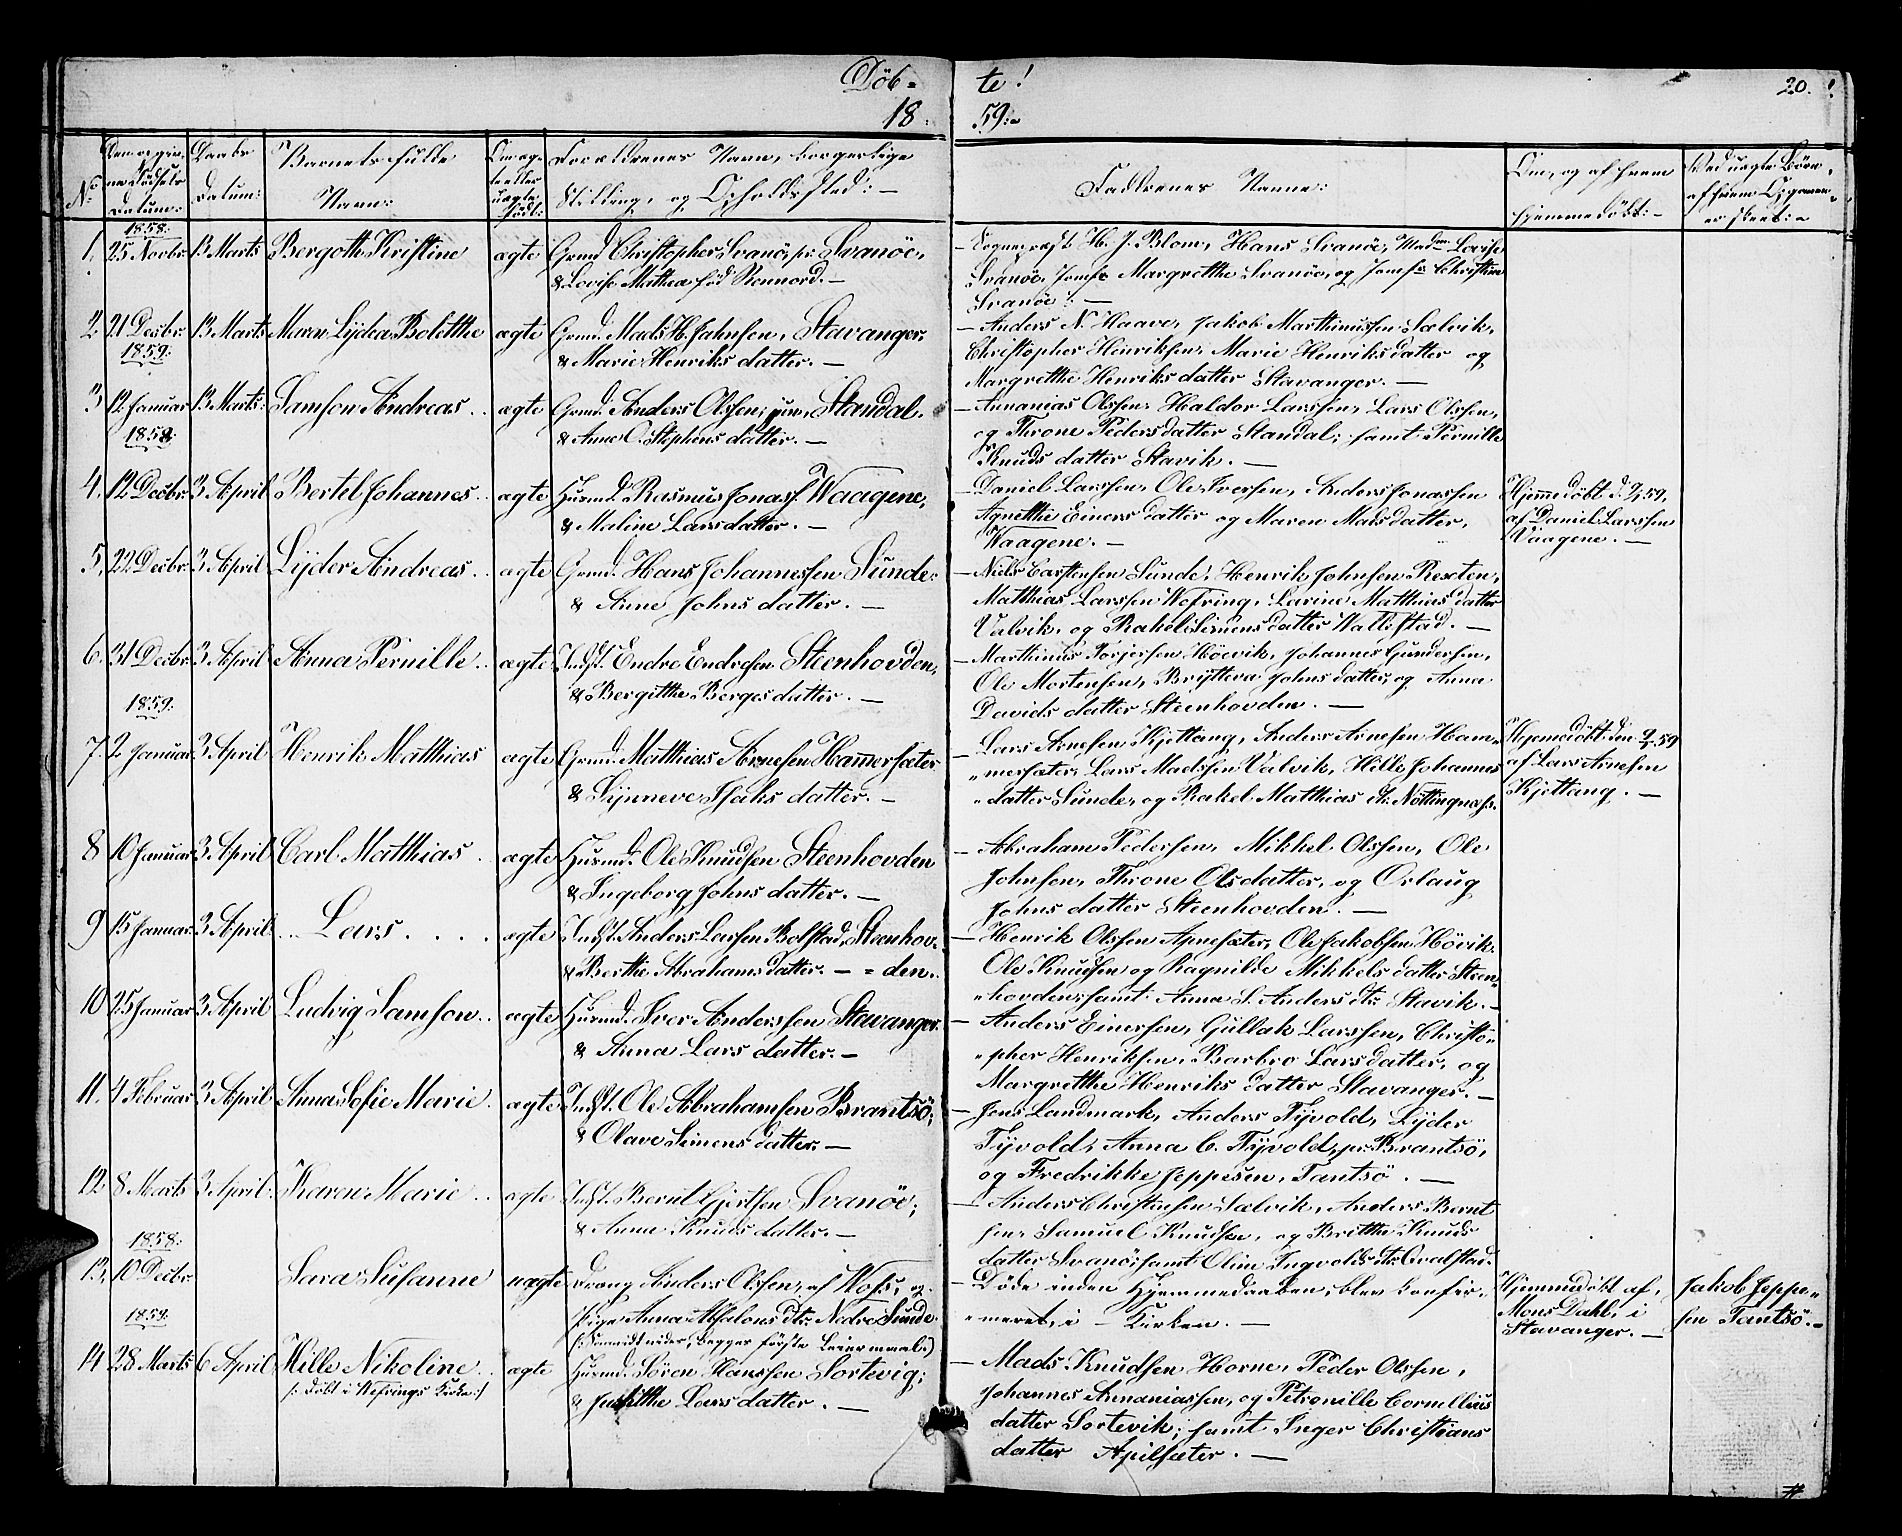 Döb- te!
20.
18 59.
No
Datum:
Daabs Datum:
Barnets fulde Navn:
Forældrenes Navn, borgerlige Stilling, og Opholdssted: —
Faddrenes Navne:
Om, og af hvem hjemmedöbt: —
1858:
1. 25 Novbr. 13 Marts Bergothe Kristine ægte Grmd. Christopher Svanöe, pr. Svanöe,
& Lovise Mathea föd Nennord. —
— Sognepræst H. J. Blom, Hans Svanöe, Lovise
Svanöe, Jomfr. Margrethe Svanöe, og Jomfr. Christine
Svanöe. —
2. 21 Decbr. 13 Marts Maren Lydea Bolethe ægte Grmd. Mads H. Jahnsen, Stavanger,
& Marie Henriks datter. —
— Anders N. Haave, Jakob Marthinussen Sælvik,
Christopher Henriksen, Marie Henriksdatter og
Margrethe Henriks datter Stavanger. —
1859:
3 12 Januar 13 Marts: Samson Andreas ægte Grmd. Anders Olssen, jun., Standal,
& Anne O. Stephens datter. —
— Annanias Olssen, Haldor Larssen, Lars Olssen,
og Throne Pedersdatter Standal; samt Pernille
Knuds datter Stavik. —
1858:
4. 12 Decbr. 3 April Bertel Johannes ægte Husmd. Rasmus Jonass. Waagene,
& Maline Larsdatter. —
— Daniel Larssen, Ole Iversen, Anders Jonassen
Agnethe Einers datter og Maren Madsdatter,
Waagene. —
Hjemmedöbt d: 2/1 59,
af Daniel Larssen
Vaagene. —
5. 22 Decbr. 3 April Lyder Andreas ægte Grmd. Hans Johannessen Sunde.
& Anne Johns datter. —
— Niels Carstensen Sunde, Henrik Johnsen Rexten,
Matthias Larssen Wefring, Larine Matthias datter
Valvik, og Rakel Simens datter Vallestad. —
6. 31 Decbr. 3 April Anna Pernille ægte Indst. Endre Endresen Steenhovden,
& Bergithe Børges datter. —
— Marthinus Torjersen Höevik, Johannes Gundersen,
Ole Mortensen, Johns datter, og Anna
Davids datter Steenhovden. —
1859:
7. 2 Januar 3 April Henrik Matthias ægte Grmd. Matthias Arnesen Hamersæter
& Synneve Isaks datter. —
— Lars Arnesen Kjettang, Anders Arnesen Ham-
"mersæter, Lars Madssen Valvik, Hille Johannes
"datter Sunde, og Rakel Matthias dtr. Nöttingnæss.
Hjemmedöbt den 9/1 59
af Lars Arnesen
Kjettang. —
8 10 Januar 3 April Carl Matthias ægte Husmd. Ole Knudsen Steenhovden
& Ingeborg Johns datter. —
— Abraham Pedersen, Mikkel Olssen, Ole
Johnsen, Throne Olsdatter, og Orlaug
Johns datter Steenhovden. —
9 15 Januar 3 April Lars ægte Indst. Anders Larsen Bolstad, Steenhov-
& Berthe Abrahamsdatter. — "den.
— Henrik Olssen Apnesæter, Ole Jakobsen Hövik,
Ole Knudsen og Ragnilde Mikkels datter Steen-
"hovden, samt Anna S. Anders dtr. Stavik. —
10 25 Januar 3 April Ludvig Samson ægte Husmd. Iver Anderssen Stavanger.
& Anna Lars datter. —
— Anders Einersen, Gullak Larssen, Christo-
"pher Henriksen, Barbro Larsdatter, og
Margrethe Henriks datter Stavanger. —
11. 4 Februar 3 April Anna Sofie Marie ægte Indst. Ole Abrahamsen Brantsö;
& Olave Simens datter. —
— Jens Landmark, Anders Tyvold, Lyder
Tyvold, Anna C. Tyvold, pr. Brantsö,
og Fredrikke Jeppesen, Tantsö. —
12. 8 Marts 3 April Karen Marie ægte Indst. Bernt Gjertsen Svanöe;
& Anna Knuds datter. —
— Anders Christensen Sælvik, Anders Bernt
sen, Samuel Knudsen, og Brithe Knuds
datter Svanö; samt Oline Ingvolds dtr.
1858:
13. 10 Decbr. Sara Susanne uægte Dreng Anders Olssen, af Woss, og
Pige Anna Absalons dtr. Nedre Sunde
(: begges förste Leiermaal:)
— Döde inden Hjemmedaaben, blev konfir-
"meret, i Kirken. —
Hjemmedöbt af
Mons Dahl, i
Stavanger. —
Jakob Jeppe-
sen Tantsö. —
1859.
14 28 Marts 6 April Hille Nikoline ægte Husmd. Sören Hanssen Sortevig;
/: döbt i Vefrings Kirke :/
& Judithe Lars datter. —
— Mads Knudsen Horne, Peder Olssen,
Johannes Annaniassen, og Petronille Cornelius
datter Sortevik; samt Inger Christians
datter Apilsæter. —